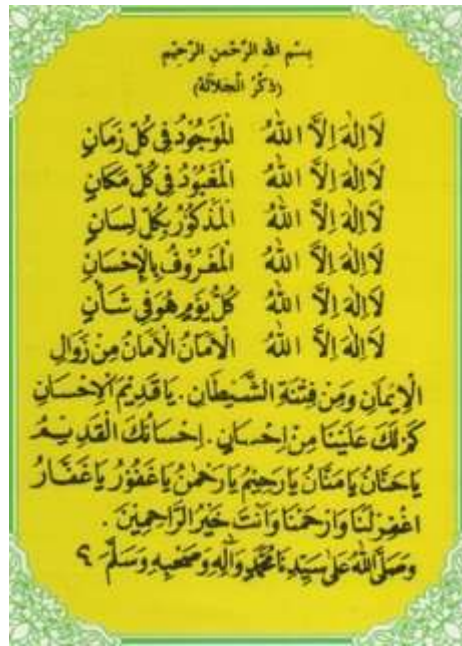 بِسْمِ اللهِ الرَّحْمنِ الرَّحِيْمِ
(ذِكْرُ الْجَلَالَةْ)
لَا اِلٰهَ اِلَّا اللهُ الْمَوْجُوْدُ فِى كُلِّ زَمَانٍ
لَا اِلٰهَ اِلَّا اللهُ الْمَعْبُوْدُ فِى كُلِّ مَكَانٍ
لَا اِلٰهَ اِلَّا اللهُ الْمَذْكُوْرُ بِكُلِّ لِسَانٍ
لَا اِلٰهَ اِلَّا اللهُ الْمَعْرُوْفُ بِالْاِحْسَانِ
لَا اِلٰهَ اِلَّا اللهُ كُلَّ يَوْمٍ هُوَ فِى شَأْنٍ
لَا اِلٰهَ اِلَّا اللهُ الْاَمَانُ الْاَمَانُ مِنْ زَوَالِ
الْاِيْمَانِ وَمِنْ فِتْنَةِ الشَّيْطَانِ . يَا قَدِيْمَ الْاِحْسَانِ
كَمْ لَكَ عَلَيْنَا مِنْ اِحْسَانٍ . اِحْسَانُكَ الْقَدِيْمُ
يَا حَنَّانُ يَا مَنَّانُ يَا رَحِيْمُ يَا رَحْمٰنُ يَا غَفُوْرُ يَا غَفَّارُ
اغْفِرْ لَنَا وَارْحَمْنَا وَاَنْتَ خَيْرُ الرَّاحِمِيْنَ .
وَصَلَّى اللهُ عَلٰى سَيِّدِنَا مُحَمَّدٍ وَاٰلِهِ وَصَحْبِهِ وَسَلَّمَ